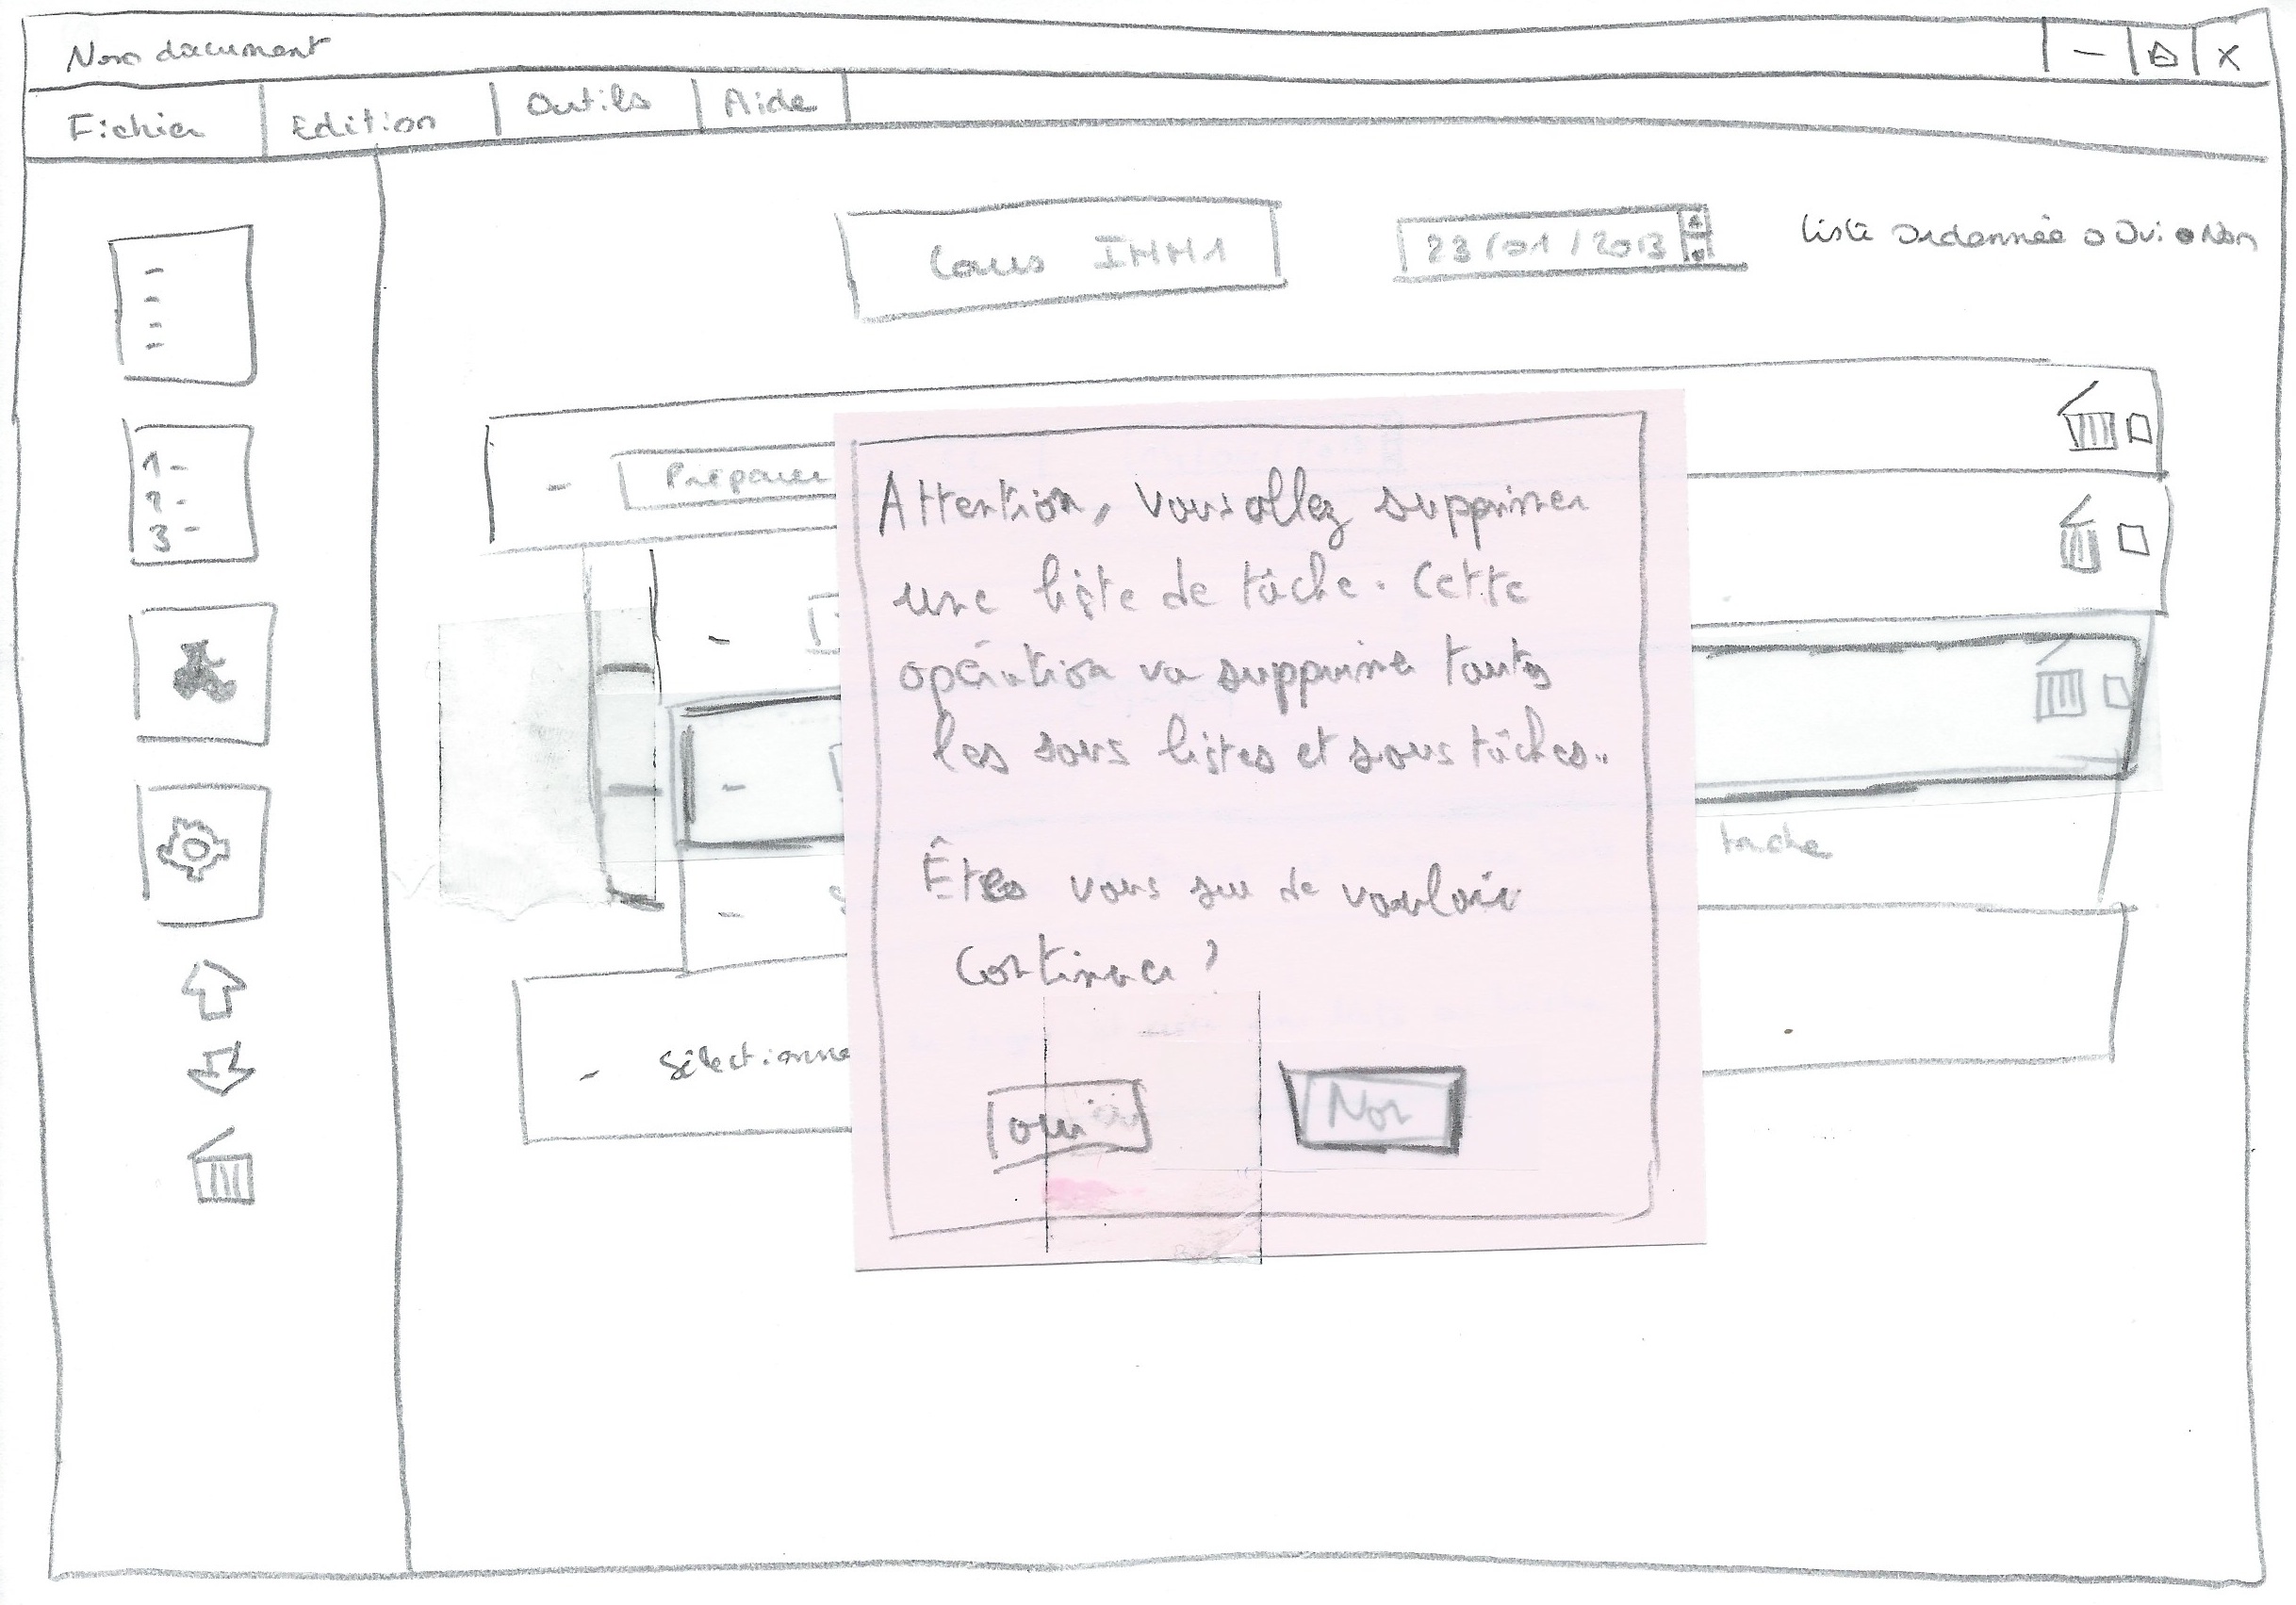 Nom document
Fichier Edition Outils Aide
Cours IHM1 23/01/2013 liste ordonnée Oui Non
1-
2-
3-
- Préparer
Attention, vous allez supprimer
une liste de tâche. Cette
opération va supprimer toutes
les sous listes et sous tâches.
Êtes vous sur de vouloir
continuer ?
oui Non
tache
- Sélectionne